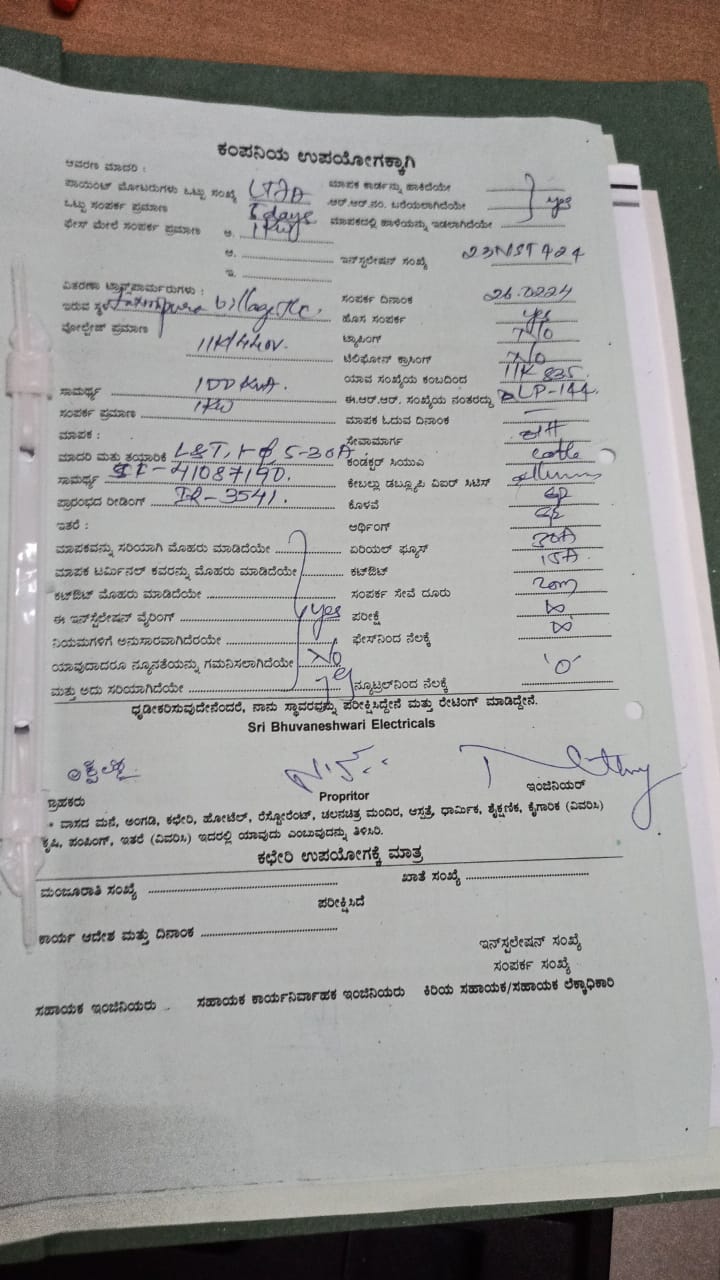 ಕಂಪನಿಯ ಉಪಯೋಗಕ್ಕಾಗಿ
ಆವರಣ ಮಾದರಿ :
ಪಾಯಿಂಟ್ ಮೋಟರುಗಳು ಒಟ್ಟು ಸಂಖ್ಯೆ ಮಾಪಕ ಕಾರ್ಡನ್ನು ಹಾಕಿದೆಯೇ
ಒಟ್ಟು ಸಂಪರ್ಕ ಪ್ರಮಾಣ 5 days ಆರ್.ಆರ್.ನಂ. ಬರೆಯಲಾಗಿದೆಯೇ yes
ಫೇಸ್ ಮೇಲೆ ಸಂಪರ್ಕ ಪ್ರಮಾಣ ಅ. 1KW ಮಾಪಕದಲ್ಲಿ ಹಾಳೆಯನ್ನು ಇಡಲಾಗಿದೆಯೇ
ಆ. ಇನ್‌ಸ್ಟಲೇಷನ್ ಸಂಖ್ಯೆ 23NST424
ಇ.
ವಿತರಣಾ ಟ್ರಾನ್ಸ್‌ಫಾರ್ಮರುಗಳು : ಸಂಪರ್ಕ ದಿನಾಂಕ 26.0224
ಇರುವ ಸ್ಥಳ village ಹೊಸ ಸಂಪರ್ಕ yes
ವೋಲ್ಟೇಜ್ ಪ್ರಮಾಣ ಟ್ಯಾಪಿಂಗ್ No
11K/440V. ಟೆಲಿಫೋನ್ ಕ್ರಾಸಿಂಗ್ No
ಸಾಮರ್ಥ್ಯ 100 KVA. ಯಾವ ಸಂಖ್ಯೆಯ ಕಂಬದಿಂದ 11K 835
ಸಂಪರ್ಕ ಪ್ರಮಾಣ 1KW ಈ.ಆರ್.ಆರ್. ಸಂಖ್ಯೆಯ ನಂತರದ್ದು LP-144.
ಮಾಪಕ : ಮಾಪಕ ಓದುವ ದಿನಾಂಕ —
ಸೇವಾಮಾರ್ಗ
ಮಾದರಿ ಮತ್ತು ತಯಾರಿಕೆ L&T, 1-Φ, 5-30A ಕಂಡಕ್ಟರ್ ಸಿಯುಎ
ಸಾಮರ್ಥ್ಯ 41087190. ಕೇಬಲ್ಲು ಡಬ್ಲ್ಯೂಪಿ ವಿಐರ್ ಸಿಟಿಸ್
ಪ್ರಾರಂಭದ ರೀಡಿಂಗ್ IR-3541. ಕೊಳವೆ GP
ಇತರೆ : ಆರ್ಥಿಂಗ್ GP
ಮಾಪಕವನ್ನು ಸರಿಯಾಗಿ ಮೊಹರು ಮಾಡಿದೆಯೇ ಏರಿಯಲ್ ಫ್ಯೂಸ್ 30A
ಮಾಪಕ ಟರ್ಮಿನಲ್ ಕವರನ್ನು ಮೊಹರು ಮಾಡಿದೆಯೇ ಕಟ್‌ಔಟ್ 15A
ಕಟ್‌ಔಟ್ ಮೊಹರು ಮಾಡಿದೆಯೇ ಸಂಪರ್ಕ ಸೇವೆ ದೂರು 20m
ಈ ಇನ್‌ಸ್ಟಲೇಷನ್ ವೈರಿಂಗ್ yes ಪರೀಕ್ಷೆ ∞
ನಿಯಮಗಳಿಗೆ ಅನುಸಾರವಾಗಿದೆರಯೇ ಫೇಸ್‌ನಿಂದ ನೆಲಕ್ಕೆ ∞
ಯಾವುದಾದರೂ ನ್ಯೂನತೆಯನ್ನು ಗಮನಿಸಲಾಗಿದೆಯೇ No
ಮತ್ತು ಅದು ಸರಿಯಾಗಿದೆಯೇ ನ್ಯೂಟ್ರಲ್‌ನಿಂದ ನೆಲಕ್ಕೆ '0'
ಧೃಡೀಕರಿಸುವುದೇನೆಂದರೆ, ನಾನು ಸ್ಥಾವರವನ್ನು ಪರೀಕ್ಷಿಸಿದ್ದೇನೆ ಮತ್ತು ರೇಟಿಂಗ್ ಮಾಡಿದ್ದೇನೆ.
Sri Bhuvaneshwari Electricals
ಗ್ರಾಹಕರು Propritor ಇಂಜಿನಿಯರ್
* ವಾಸದ ಮನೆ, ಅಂಗಡಿ, ಕಛೇರಿ, ಹೋಟೆಲ್, ರೆಸ್ಟೋರೆಂಟ್, ಚಲನಚಿತ್ರ ಮಂದಿರ, ಆಸ್ಪತ್ರೆ, ಧಾರ್ಮಿಕ, ಶೈಕ್ಷಣಿಕ, ಕೈಗಾರಿಕ (ವಿವರಿಸಿ)
ಕೃಷಿ, ಪಂಪಿಂಗ್, ಇತರೆ (ವಿವರಿಸಿ) ಇದರಲ್ಲಿ ಯಾವುದು ಎಂಬುವುದನ್ನು ತಿಳಿಸಿರಿ.
ಕಛೇರಿ ಉಪಯೋಗಕ್ಕೆ ಮಾತ್ರ
ಮಂಜೂರಾತಿ ಸಂಖ್ಯೆ ಖಾತೆ ಸಂಖ್ಯೆ
ಪರೀಕ್ಷಿಸಿದೆ
ಕಾರ್ಯ ಆದೇಶ ಮತ್ತು ದಿನಾಂಕ
ಇನ್‌ಸ್ಟಲೇಷನ್ ಸಂಖ್ಯೆ
ಸಂಪರ್ಕ ಸಂಖ್ಯೆ
ಸಹಾಯಕ ಇಂಜಿನಿಯರು ಸಹಾಯಕ ಕಾರ್ಯನಿರ್ವಾಹಕ ಇಂಜಿನಿಯರು ಕಿರಿಯ ಸಹಾಯಕ/ಸಹಾಯಕ ಲೆಕ್ಕಾಧಿಕಾರಿ